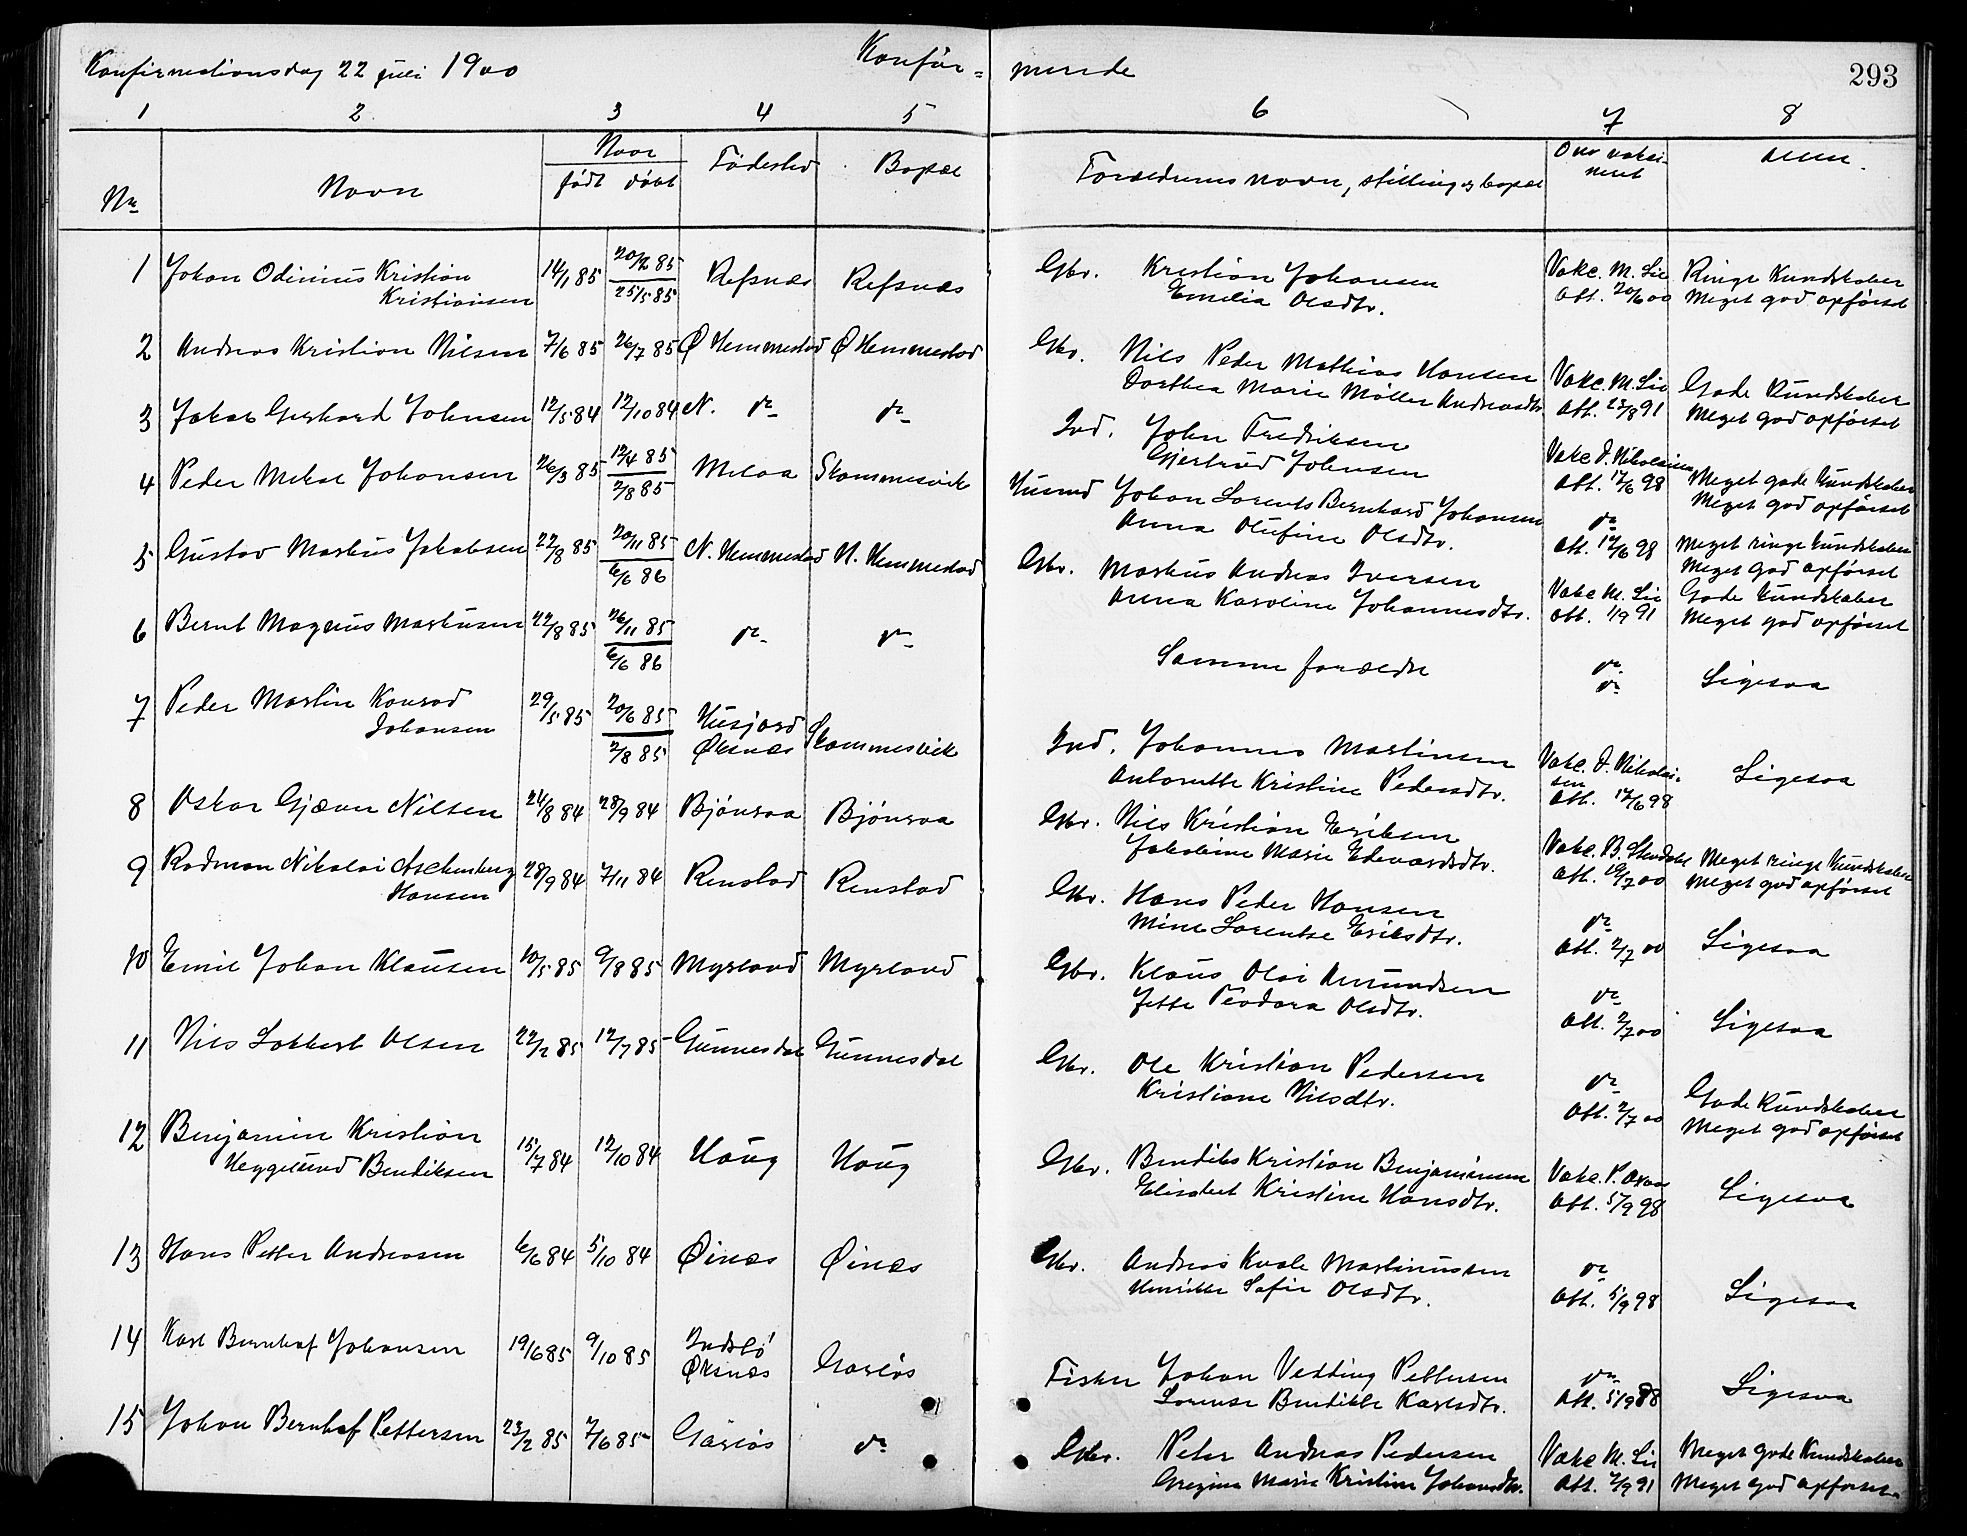 Konfirmationsdag 22 juli 1900
Konfir=
mende
293
1 2 3 4 5 6 7 8
Nr Navn Naar født døbt Fødested Bopæl Forældrenes navn, stilling og bopæl Om vaksi-
neret Anm.
1 Johan Odinius Kristian 14/1 85 20/2 85 Refsnæs Refsnæs Gbr. Kristian Johansen Vakc. M. Lie Ringe Kundskaber
Kristiansen 25/5 85 Emelia Olsdtr. Att. 20/6 00 Meget god opførsel
2 Andreas Kristian Nilsen 7/6 85 26/7 85 Ø Hemmestad Ø Hemmestad Gbr. Nils Peder Mathias Hansen Vakc. M. Lie Gode Kundskaber
Dorthea Marie Møller Andreasdtr. Att. 23/8 91 Meget god opførsel
3 Jakob Gerhard Johnsen 12/5 84 12/10 84 N. do do Ind. John Fredriksen Vakc. D. Nikolaisen Meget gode Kundskaber
Gjertrud Johnsen Att. 17/6 98 Meget god opførsel
4 Peder Mekal Johansen 26/3 85 12/4 85 Melaa Skammesvik Husmd Johan Lorents Bernhard Johansen do Meget ringe Kundskaber
2/8 85 Anna Olufine Olsdtr. Att. 17/6 98 Meget god opførsel
5 Gustav Markus Jakobsen 22/8 85 20/11 85 N. Hemmestad N. Hemmestad Gbr. Markus Andreas Iversen Vakc M. Lie Gode Kundskaber
6/6 86 Anna Karoline Johannesdtr. Att. 1/9 91 Meget god opførsel
6 Bernt Magnus Markusen 22/8 85 26/11 85 do do Samme forældre do Ligesaa
6/6 86 do
7 Peder Martin Konrad 29/5 85 20/6 85 Husjord Skammesvik Ind. Johannes Martinsen Vakc. D. Nikolai-
Johansen 2/8 85 Øksnæs Antonette Kristine Pedersdtr. sen Att. 17/6 98 Ligesaa
8 Oskar Gjæver Nilsen 24/8 84 28/9 84 Bjønraa Bjønraa Gbr. Nils Kristian Eriksen Vakc. B. Meget ringe Kundskaber
Jakobine Marie Edevardsdtr. Att. 19/7 00 Meget god opførsel
9 Rodman Nikolai Aschenberg 28/9 84 7/11 84 Renstad Renstad Gbr. Hans Peder Hansen do Ligesaa
Hansen Mine Lorentse Eriksdtr. Att. 2/7 00
10 Emil Johan Klausen 10/5 85 9/8 85 Myrland Myrland Gbr. Klaus Olai Amundsen do Ligesaa
Jette Teodora Olsdtr. Att. 2/7 00
11 Nils Lokkert Olsen 22/2 85 12/7 85 Gunnesdal Gunnesdal Gbr. Ole Kristian Pedersen do Gode Kundskaber
Kristiane Nilsdtr. Att. 2/7 00 Meget god opførsel
12 Benjamin Kristian 15/7 84 12/10 84 Haug Haug Gbr. Bendiks Kristian Benjaminsen Vakc. P. Ligesaa
Heggelund Bendiksen Elisabet Kristine Hansdtr. Att. 5/9 98
13 Hans Petter Andreasen 6/6 84 5/10 84 Øinæs Øinæs Gbr. Andreas Kvale Martinussen do Ligesaa
Henrikke Sofie Olsdtr. Att. 5/9 98
14 Karl Bernhof Johansen 19/6 85 9/10 85 Indslø Garløs Fisker Johan Vedding Pettersen do Ligesaa
Øksnæs Lorense Bendikke Karlsdtr. Att. 5/9 98
15 Johan Bernhof Pettersen 23/2 85 7/6 85 Garløs do Gbr. Peter Andreas Pedersen Vakc M. Lie Meget gode Kundskaber
Gregine Marie Kristine Johansdtr. Att. 2/9 91 Meget god opførsel